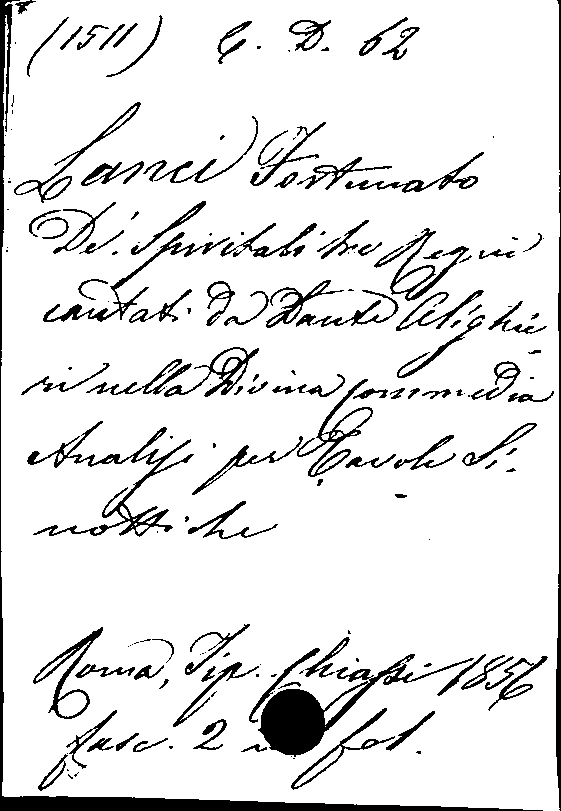 (1511) G. D. 62
Lanci Fortunato
De' Spiritali tre Regni
cantati da Dante Alighie-
ri nella Divina Commedia
Analisi per Tavole Si-
nottiche
Roma, Tip. Chiassi 1856
fasc. 2 fol.